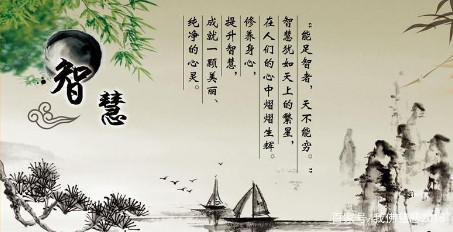 智慧
“能足智者,天不能穷。”
智慧犹如天上的繁星,
在人们的心中熠熠生辉。
修养身心,
提升智慧,
成就一颗美丽、
纯净的心灵。
百家号/我佛